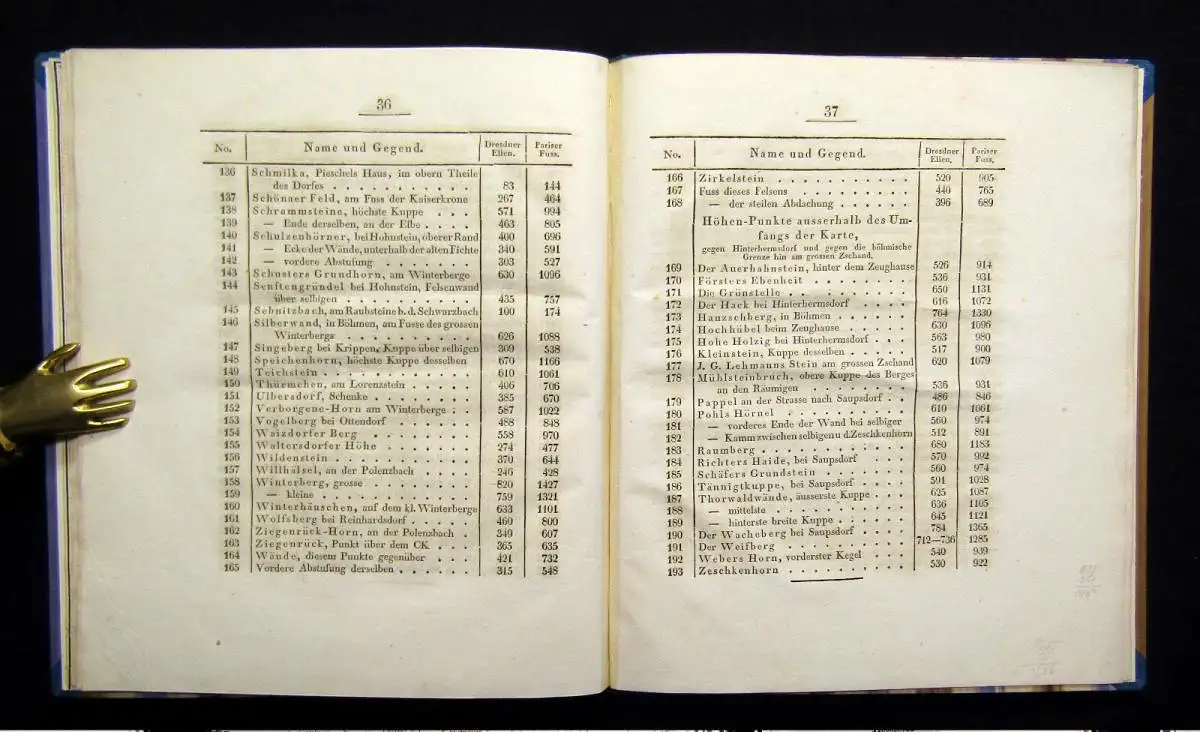 36
No. Name und Gegend. Dresdner Ellen. Pariser Fuss.
136 Schmilka, Pieschels Haus, im obern Theile
des Dorfes . . . . . . . . . . . 83 144
137 Schönaer Feld, am Fuss der Kaiserkrone 267 464
138 Schrammsteine, höchste Kuppe . . . 571 994
139 — Ende derselben, an der Elbe . . . . 463 805
140 Schulzenhörner, bei Hohnstein, oberer Rand 400 696
141 — Ecke der Wände, unterhalb der alten Fichte 340 591
142 — vordere Abstufung . . . . . . . 303 527
143 Schusters Grundhorn, am Winterberge 630 1096
144 Senftengründel bei Hohnstein, Felsenwand
über selbigen . . . . . . . . . . 435 757
145 Sebnitzbach, am Raubsteine b. d. Schwarzbach 100 174
146 Silberwand, in Böhmen, am Fusse des grossen
Winterbergs . . . . . . . . . . 626 1088
147 Singeberg bei Krippen, Kuppe über selbigen 309 538
148 Speichenhorn, höchste Kuppe desselben 670 1166
149 Teichstein . . . . . . . . . . . 610 1061
150 Thürmchen, am Lorenzstein . . . . . 406 706
151 Ulbersdorf, Schenke . . . . . . . . 385 670
152 Verborgene-Horn am Winterberge . . 587 1022
153 Vogelberg bei Ottendorf . . . . . . 488 848
154 Waizdorfer Berg . . . . . . . . 558 970
155 Waltersdorfer Höhe . . . . . . . 274 477
156 Wildenstein . . . . . . . . . . 370 644
157 Willhälsel, an der Polenzbach . . . . 246 428
158 Winterberg, grosse . . . . . . . . 820 1427
159 — kleine . . . . . . . . . . . . 759 1321
160 Winterhäuschen, auf dem kl. Winterberge 633 1101
161 Wolfsberg bei Reinhardsdorf . . . . . 460 800
162 Ziegenrück-Horn, an der Polenzbach . 349 607
163 Ziegenrück, Punkt über dem CK . . . 365 635
164 Wände, diesem Punkte gegenüber . . . 421 732
165 Vordere Abstufung derselben . . . . . . 315 548
37
No. Name und Gegend. Dresdner Ellen. Pariser Fuss.
166 Zirkelstein . . . . . . . . . . . 520 905
167 Fuss dieses Felsens . . . . . . . . . 440 765
168 — der steilen Abdachung . . . . . . 396 689
Höhen-Punkte ausserhalb des Um-
fangs der Karte,
gegen Hinterhermsdorf und gegen die böhmische
Grenze hin am grossen Zschand.
169 Der Auerhahnstein, hinter dem Zeughause 526 914
170 Försters Ebenheit . . . . . . . . 536 931
171 Die Grünstelle . . . . . . . . . . 650 1131
172 Der Hack bei Hinterhermsdorf . . . . 616 1072
173 Hauzschberg, in Böhmen . . . . . . 764 1330
174 Hochhübel beim Zeughause . . . . . 630 1096
175 Hohe Holzig bei Hinterhermsdorf . . . 563 980
176 Kleinstein, Kuppe desselben . . . . . 517 900
177 J. G. Lehmanns Stein am grossen Zschand 620 1079
178 Mühlsteinbruch, obere Kuppe des Berges
an den Räumigen . . . . . . . . . 536 931
179 Pappel an der Strasse nach Saupsdorf . . 486 846
180 Pohls Hörnel . . . . . . . . . . 610 1061
181 — vorderes Ende der Wand bei selbiger 560 974
182 — Kamm zwischen selbigen u. d. Zeschkenhorn 512 891
183 Raumberg . . . . . . . . . . . 680 1183
184 Richters Haide, bei Saupsdorf . . . 570 992
185 Schäfers Grundstein . . . . . . . 560 974
186 Tännigtkuppe, bei Saupsdorf . . . . 591 1028
187 Thorwaldwände, äusserste Kuppe . . . 625 1087
188 — mittelste . . . . . . . . . . . 636 1105
189 — hinterste breite Kuppe . . . . . . 645 1121
190 Der Wacheberg bei Saupsdorf . . . . 784 1365
191 Der Weifberg . . . . . . . . . . 712—736 1285
192 Webers Horn, vorderster Kegel . . . . 540 939
193 Zeschkenhorn . . . . . . . . . . 530 922